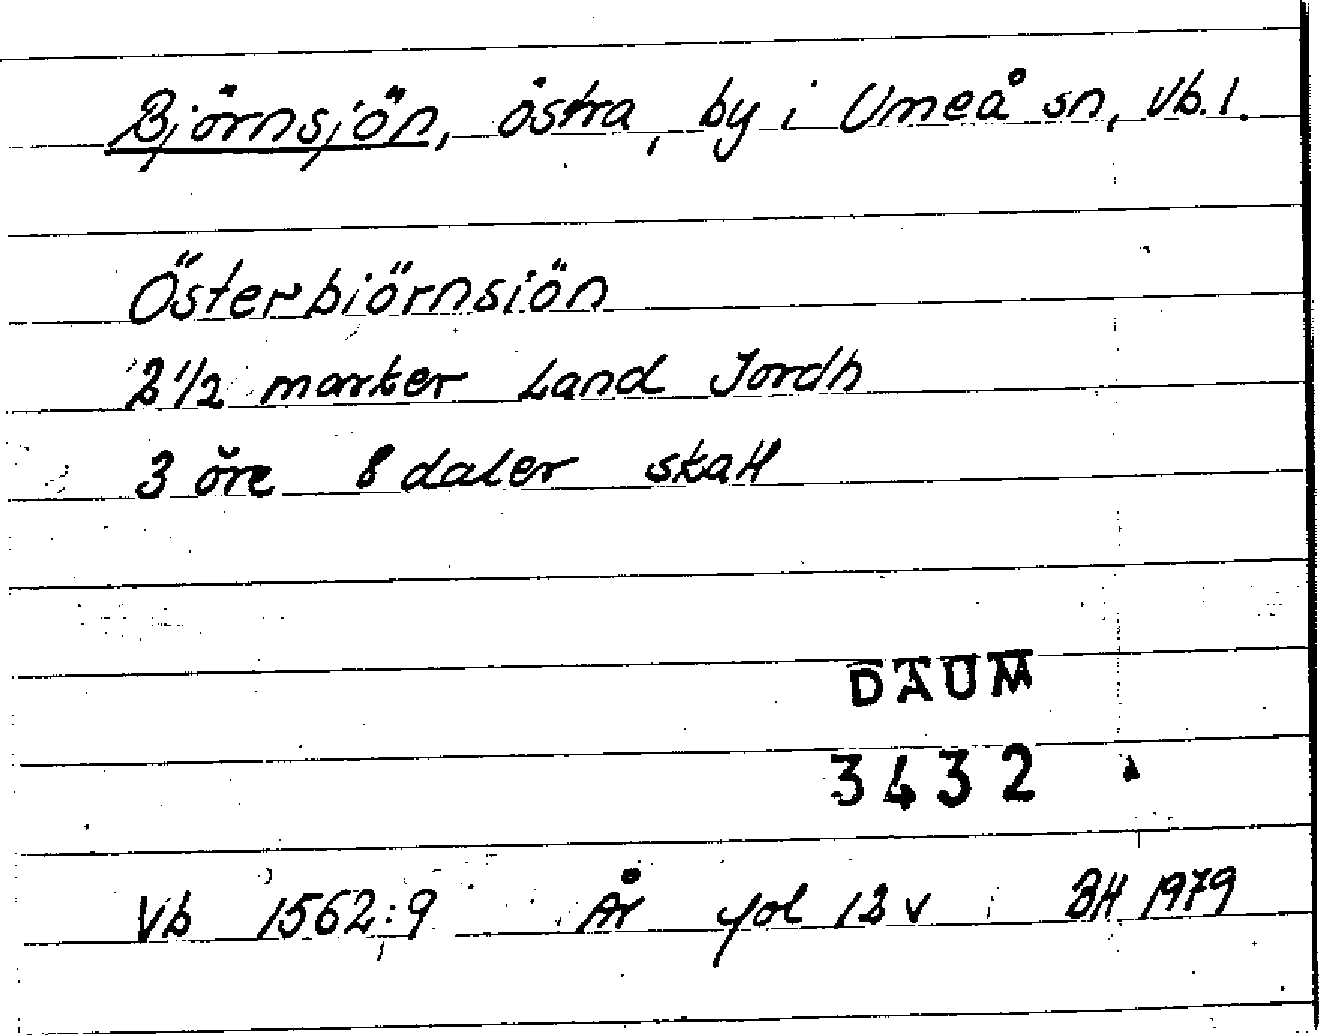 Björnsjön, östra, by i Umeå sn, Vb. l.
Österbiörnsiön
2 1/2 marker Land Jordh
3 öre 8 daler skatt
DAUM
3432
Vb 1562:9 År fol 12 v BH 1979